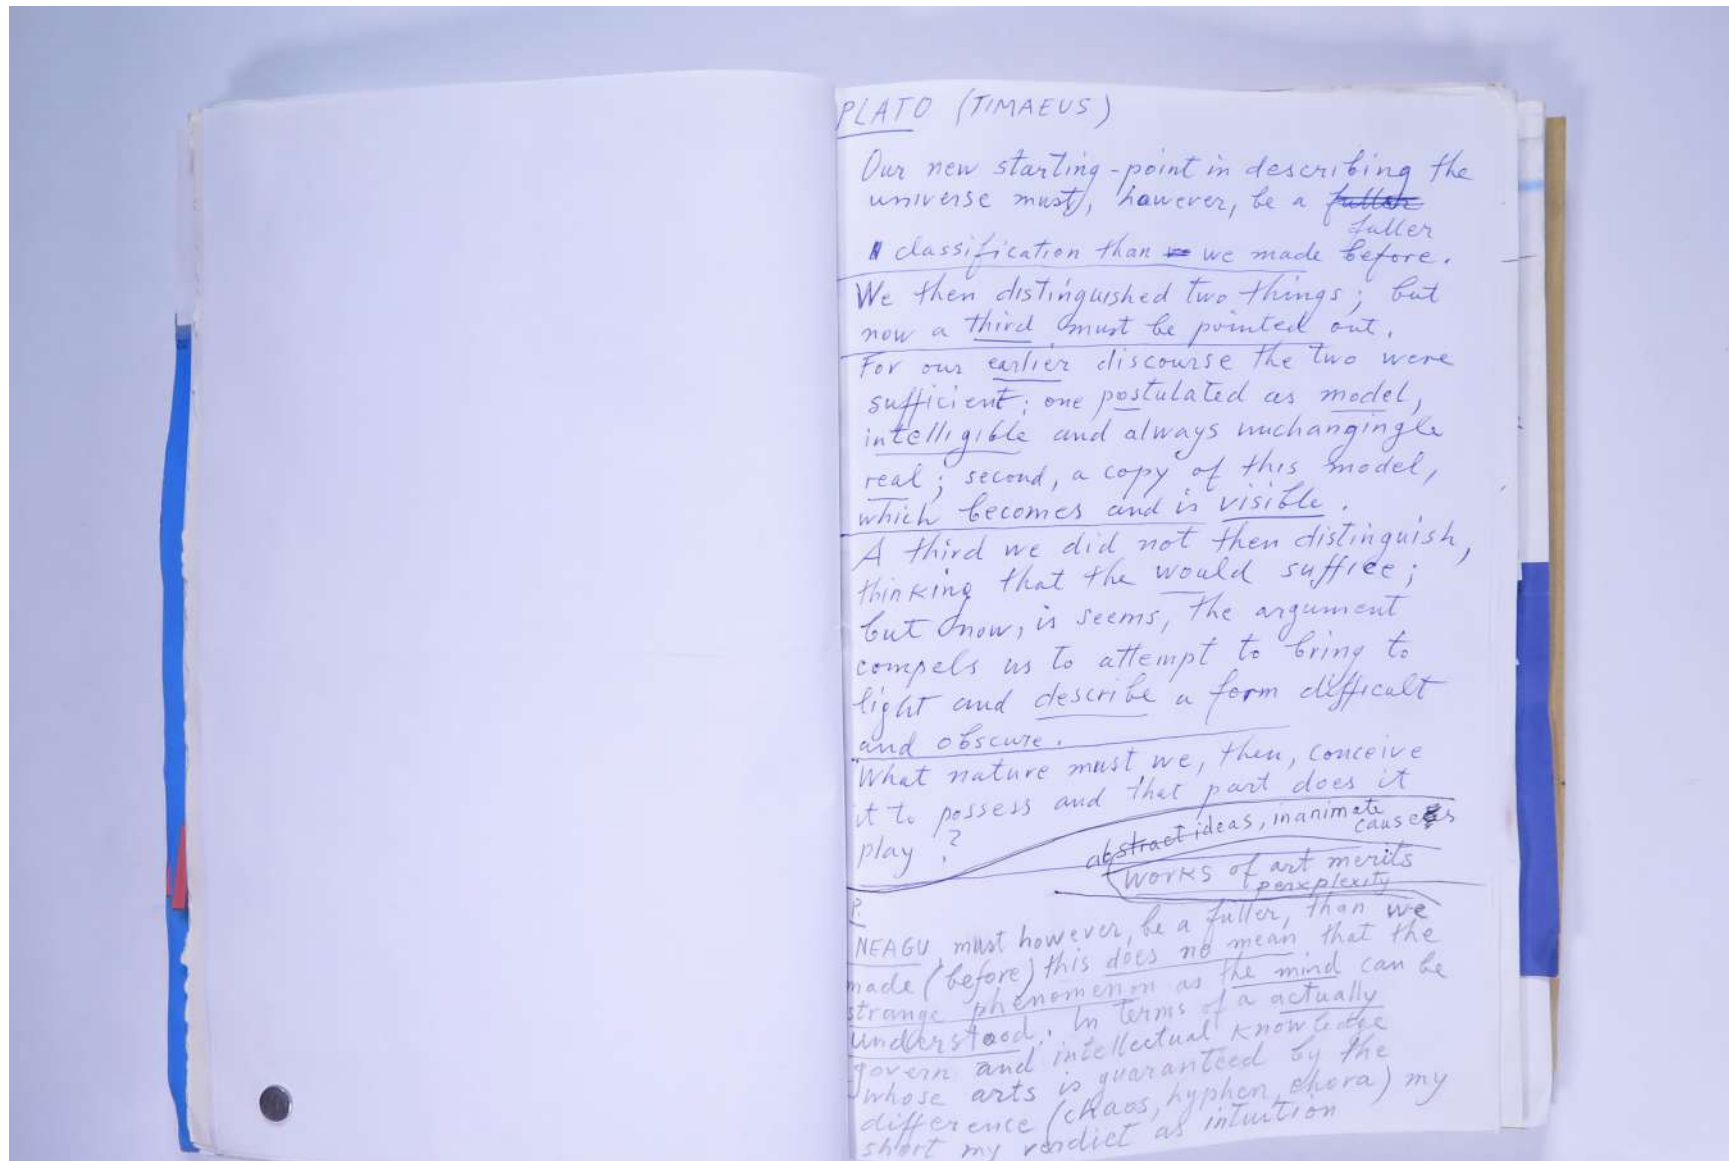 PLATO (TIMAEUS)
Our new starting-point in describing the
universe must, however, be a fuller
fuller
classification than we made before.
We then distinguished two things; but
now a third must be pointed out.
For our earlier discourse the two were
sufficient; one postulated as model,
intelligible and always unchangingle
real; second, a copy of this model,
which becomes and is visible.
A third we did not then distinguish,
thinking that the would suffice;
but now, is seems, the argument
compels us to attempt to bring to
light and describe a form difficult
and obscure.
What nature must we, then, conceive
it to possess and that part does it
play ?
abstract ideas, inanimate
causes
works of art merits
perxplexity
P.
NEAGU must however, be a fuller, than we
made (before) this does no mean that the
strange phenomenon as the mind can be
understood. In terms of a actually
govern and intellectual knowledge
whose arts is guaranteed by the
difference (chaos, hyphen, chora) my
short my verdict as intuition